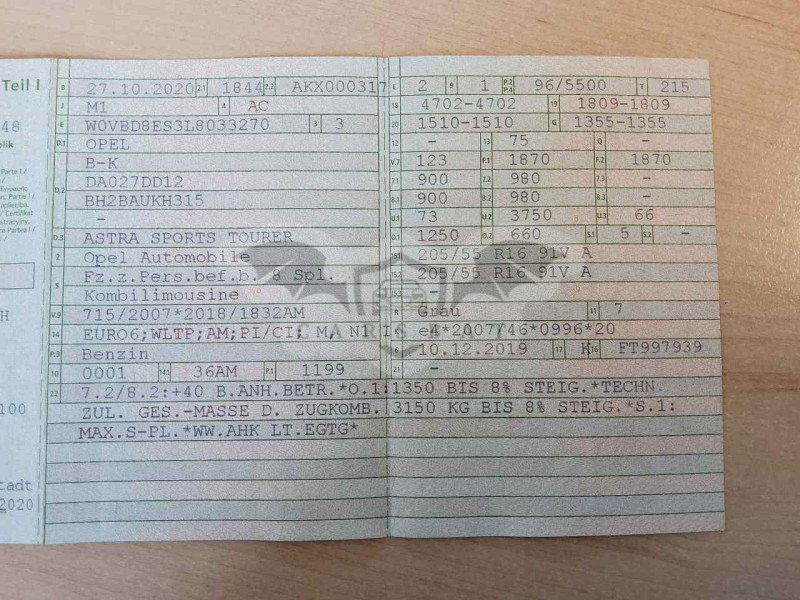 Teil I
B 27.10.2020 2.1 1844 2.2 AKX000317
J M1 4 AC
E W0VBD8ES3L8033270 3 3
D.1 OPEL
B-K
D.2 DA027DD12
BH2BAUKH315
-
D.3 ASTRA SPORTS TOURER
2 Opel Automobile
5 Fz.z.Pers.bef.b. 8 Spl.
Kombilimousine
V.9 715/2007*2018/1832AM
14 EURO6;WLTP;AM;PI/CI; M, N1 I
P.3 Benzin
10 0001 14.1 36AM P.1 1199
L 2 9 1 P.2 P.4 96/5500 T 215
18 4702-4702 19 1809-1809
20 1510-1510 G 1355-1355
12 - 13 75 Q -
V.7 123 F.1 1870 F.2 1870
7.1 900 7.2 980 7.3 -
8.1 900 8.2 980 8.3 -
U.1 73 U.2 3750 U.3 66
O.1 1250 O.2 660 S.1 5 S.2 -
15.1 205/55 R16 91V A
15.2 205/55 R16 91V A
15.3 -
R Grau 11 7
K e4*2007/46*0996*20
6 10.12.2019 17 K 16 FT997939
21 -
22 7.2/8.2:+40 B.ANH.BETR.*O.1:1350 BIS 8% STEIG.*TECHN.
ZUL. GES.-MASSE D. ZUGKOMB. 3150 KG BIS 8% STEIG.*S.1:
MAX.S-PL.*WW.AHK LT.EGTG*
48
H
100
tadt
2020